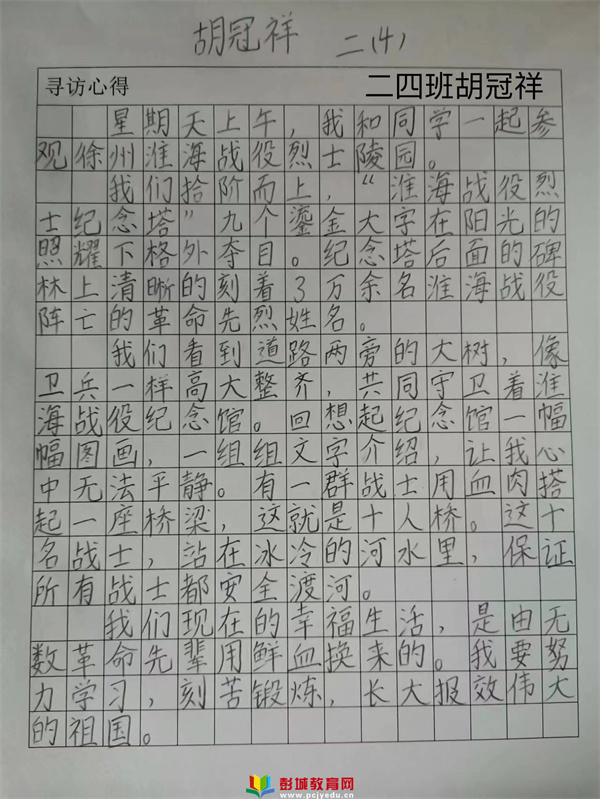 胡冠祥 二(4)
寻访心得 二四班胡冠祥
星期天上午，我和同学一起参
观徐州淮海战役烈士陵园。
我们拾阶而上，“淮海战役烈
士纪念塔”九个鎏金大字在阳光的
照耀下格外夺目。纪念塔后面的碑
林上清晰的刻着3万余名淮海战役
阵亡的革命先烈姓名。
我们看到道路两旁的大树，像
卫兵一样高大整齐，共同守卫着淮
海战役纪念馆。回想起纪念馆一幅
幅图画，一组组文字介绍，让我心
中无法平静。有一群战士用血肉搭
起一座桥梁，这就是十人桥。这十
名战士，站在冰冷的河水里，保证
所有战士都安全渡河。
我们现在的幸福生活，是由无
数革命先辈用鲜血换来的。我要努
力学习，刻苦锻炼，长大报效伟大
的祖国。
彭城教育网
www.pcjyedu.cn